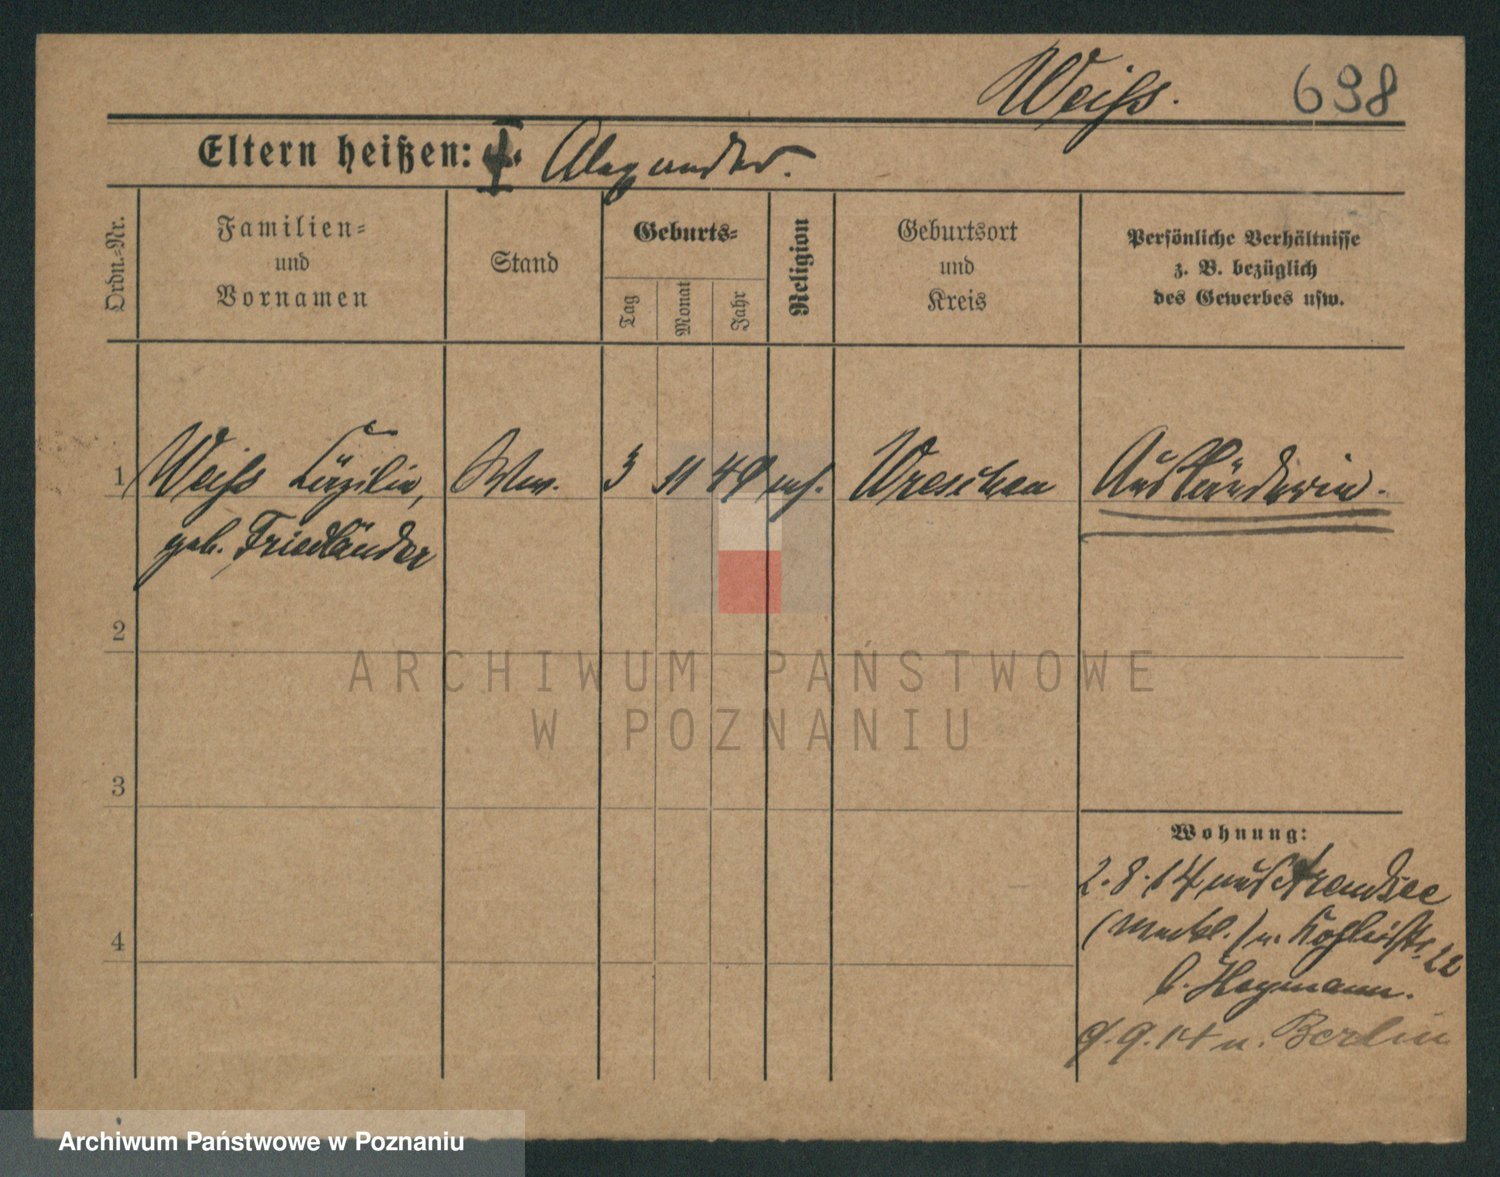 Weiß. 698
Eltern heißen: Alexander.
Ordn.-Nr.
Familien-
und
Vornamen
Stand
Geburts-
Tag
Monat
Jahr
Religion
Geburtsort
und
Kreis
Persönliche Verhältnisse
z. B. bezüglich
des Gewerbes usw.
1 Weiß Cäzilie, Ww. 3 11 49 mos. Wreschen Ausländerin.
geb. Friedländer
2
3
4
Wohnung:
2.8.14 aus Arendsee
(Meckl.) n. 22
b. Heymann.
9.9.14 n. Berlin
ARCHIWUM PAŃSTWOWE
W POZNANIU
Archiwum Państwowe w Poznaniu